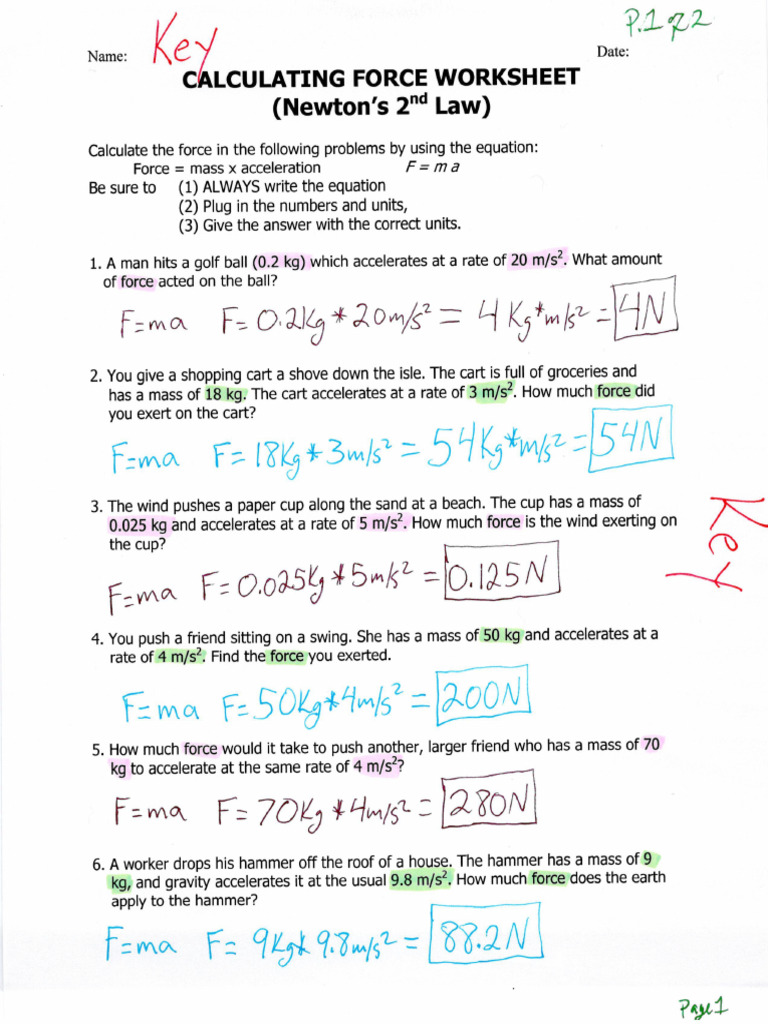 P.1 of 2
Name: Key Date:
CALCULATING FORCE WORKSHEET
(Newton's 2nd Law)
Calculate the force in the following problems by using the equation:
Force = mass x acceleration F = m a
Be sure to (1) ALWAYS write the equation
(2) Plug in the numbers and units,
(3) Give the answer with the correct units.
1. A man hits a golf ball (0.2 kg) which accelerates at a rate of 20 m/s². What amount
of force acted on the ball?
F=ma F= 0.2Kg*20m/s² = 4 Kg*m/s² = 4N
2. You give a shopping cart a shove down the isle. The cart is full of groceries and
has a mass of 18 kg. The cart accelerates at a rate of 3 m/s². How much force did
you exert on the cart?
F=ma F= 18Kg*3m/s² = 54Kg*m/s² = 54N
3. The wind pushes a paper cup along the sand at a beach. The cup has a mass of
0.025 kg and accelerates at a rate of 5 m/s². How much force is the wind exerting on
the cup?
Key
F=ma F= 0.025Kg*5m/s² = 0.125N
4. You push a friend sitting on a swing. She has a mass of 50 kg and accelerates at a
rate of 4 m/s². Find the force you exerted.
F=ma F=50Kg*4m/s² = 200N
5. How much force would it take to push another, larger friend who has a mass of 70
kg to accelerate at the same rate of 4 m/s²?
F=ma F=70Kg*4m/s² = 280N
6. A worker drops his hammer off the roof of a house. The hammer has a mass of 9
kg, and gravity accelerates it at the usual 9.8 m/s². How much force does the earth
apply to the hammer?
F=ma F= 9Kg* 9.8m/s² = 88.2N
Page 1